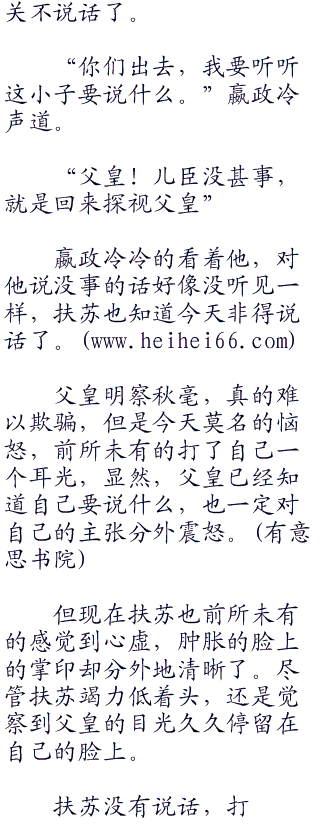 关不说话了。
“你们出去，我要听听
这小子要说什么。”嬴政冷
声道。
“父皇！儿臣没甚事，
就是回来探视父皇”
嬴政冷冷的看着他，对
他说没事的话好像没听见一
样，扶苏也知道今天非得说
话了。(www.heihei66.com)
父皇明察秋毫，真的难
以欺骗，但是今天莫名的恼
怒，前所未有的打了自己一
个耳光，显然，父皇已经知
道自己要说什么，也一定对
自己的主张分外震怒。(有意
思书院)
但现在扶苏也前所未有
的感觉到心虚，肿胀的脸上
的掌印却分外地清晰了。尽
管扶苏竭力低着头，还是觉
察到父皇的目光久久停留在
自己的脸上。
扶苏没有说话，打